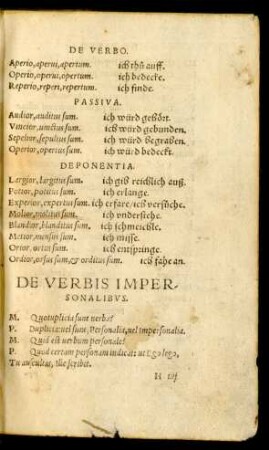 DE VERBO.
Aperio, aperui, apertum. ich thů auff.
Operio, operui, opertum. ich bedecke.
Reperio, reperi, repertum. ich finde.
PASSIVA.
Audior, auditus sum. ich würd gehört.
Vincior, uinctus sum. ich würd gebunden.
Sepelior, sepultus sum. ich würd begraben.
Operior, opertus sum. ich würd bedeckt.
DEPONENTIA.
Largior, largitus sum. ich gib reichlich auß.
Potior, potitus sum. ich erlange.
Experior, expertus sum. ich erfare / ich versůche.
Molior, molitus sum. ich understehe.
Blandior, blanditus sum. ich schmeichle.
Metior, mensus sum. ich misse.
Orior, ortus sum. ich entspringe.
Ordior, orsus sum, & orditus sum. ich fahe an.
DE VERBIS IMPER-
SONALIBVS.
M. Quotuplicia sunt uerba?
P. Duplicia: uel sunt, Personalia, uel impersonalia.
M. Quid est uerbum personale?
P. Quod certam personam indicat: ut Ego lego,
Tu auscultas, Ille scribit.
H